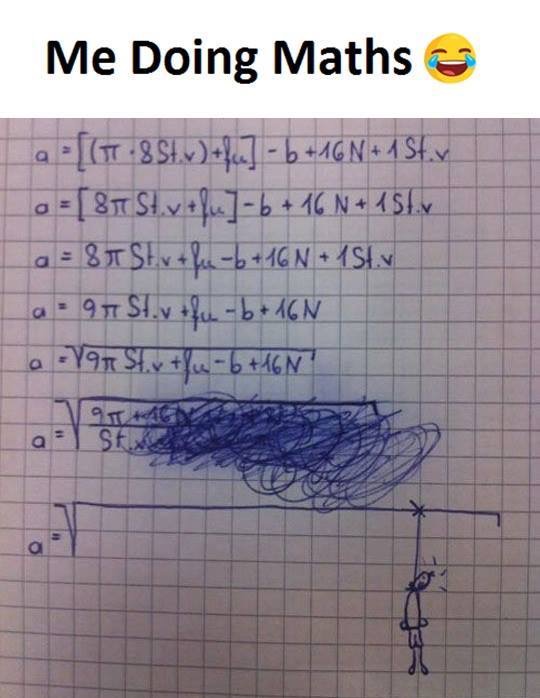 Me Doing Maths 😂
a = [(π · 8St.v)+fu] - b +16N+1St.v
a = [8π St.v+fu]-b + 16 N + 1St.v
a = 8π St.v+fu-b+16N + 1St.v
a = 9π St.v+fu-b+16N
a = √9π St.v +fu-b+16N
a = √9π+16N
St.
a = √